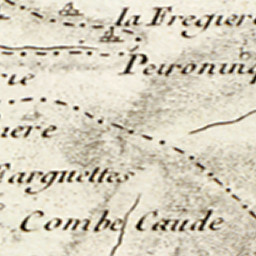 la Fregiere
Peironinq
rie
iere
Sarguettes
Combe Caude